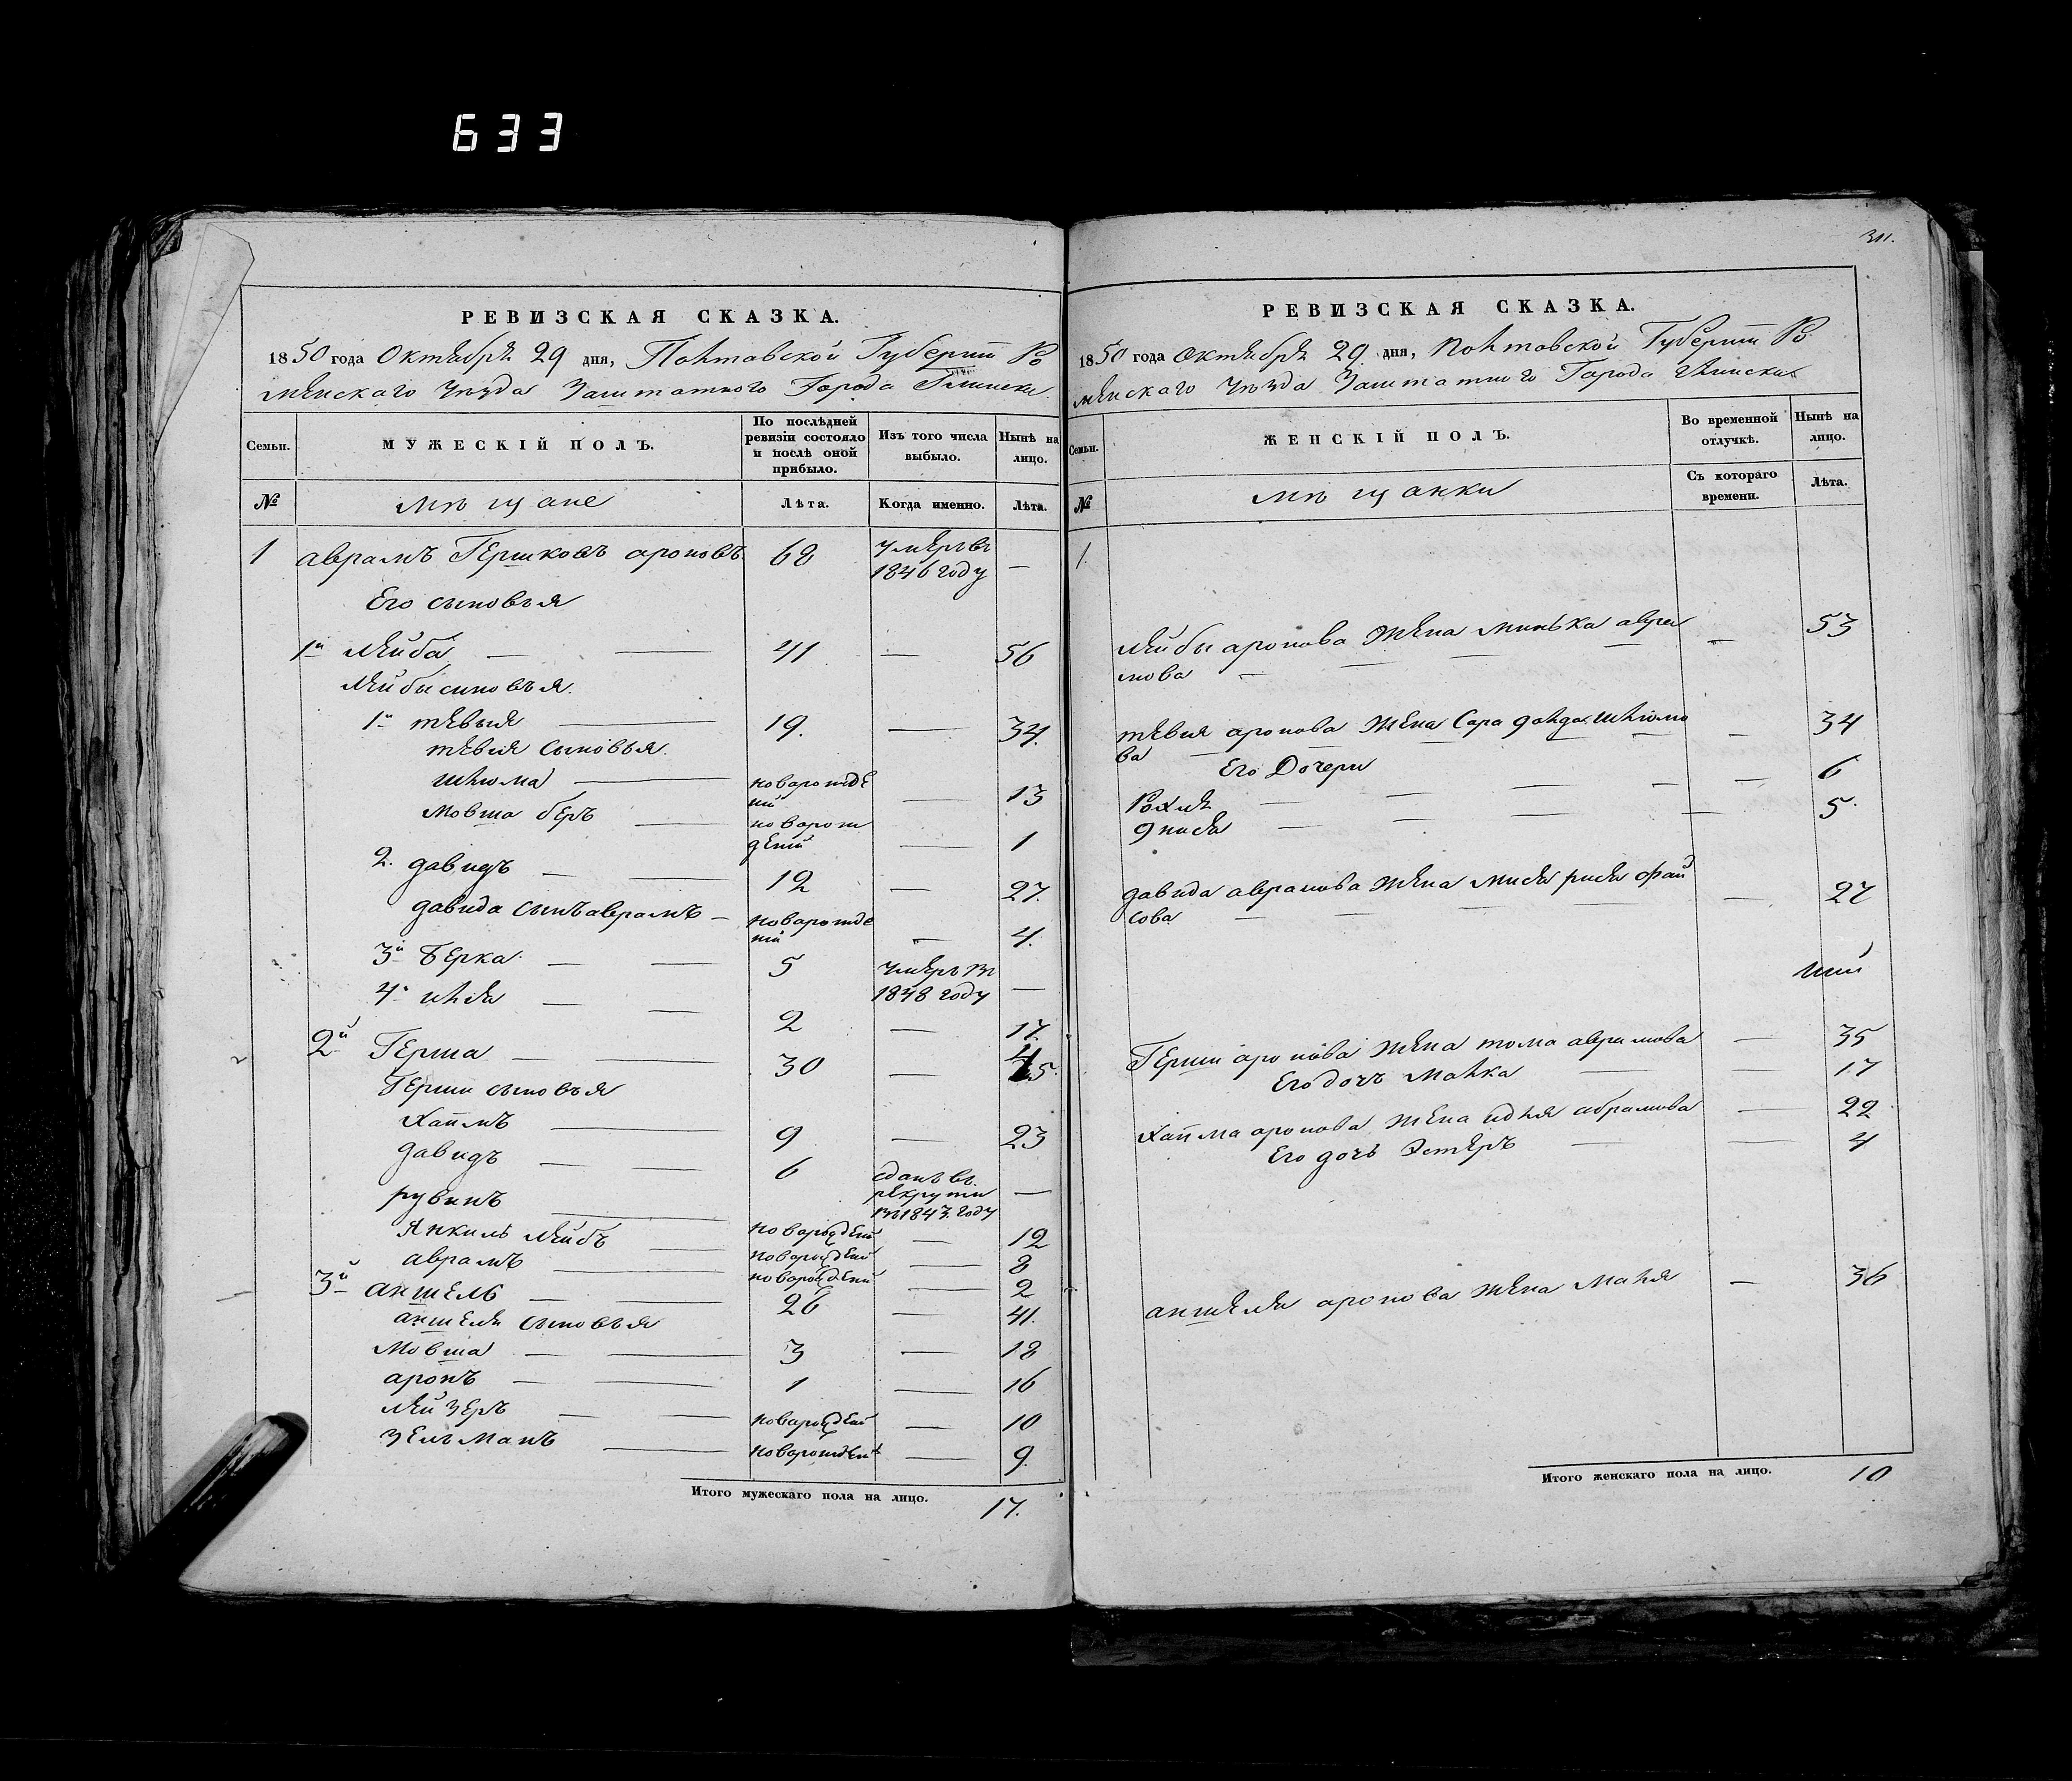 633
РЕВИЗСКАЯ СКАЗКА.
1850 года Октября 29 дня, Полтавской Губернии Ро
менскаго уезда Заштатного Города Глинска.
Семьи. МУЖЕСКІЙ ПОЛЪ. По послѣдней ревизіи состояло и послѣ оной прибыло. Изъ того числа выбыло. Нынѣ на лицо.
№ мѣщане Лѣта. Когда именно. Лѣта.
1 аврамъ Гершковъ ароновъ 68 умеръ въ 1846 году —
Его сыновья
1й лейба — — 41 — 56
лейбы сыновья.
1й тевья — 19. — 34.
тевья сыновья.
шлюма — новарожде ный — 13
Мовша беръ — новарож деный — 1
2. давидъ — — 12 — 27.
давида сынъ аврамъ — новарожде ный — 4.
3й Берка. — — 5 умеръ въ 1848 году —
4й илья — — 2 — 17.
2й Герша — — 30 — 45.
Герши сыновья
Хаимъ — 9 — 23
давидъ — — 6 сданъ въ рекруты въ 1847. году —
рувинъ — новарожденый — 12
Янкиль лейбъ — новарожденый — 8
аврамъ — новарожденый — 2
3й аншель — — 26 — 41.
аншеля сыновья
Мовша — — 3 — 18
аронъ — — 1 — 16
лейзеръ — — новарожденый — 10
зельманъ — новарожденый — 9.
Итого мужескаго пола на лицо. 17.
311.
РЕВИЗСКАЯ СКАЗКА.
1850 года Октября 29 дня, Полтовской Губернии Ро
менскаго уезда Заштатного Города Глинска
Семьи. ЖЕНСКІЙ ПОЛЪ. Во временной отлучкѣ. Нынѣ на лицо.
№ мѣщанки Съ котораго времени. Лѣта.
1.
лейбы аронова жена минька авра — 53
мова — — — —
тевья аронова жена Сара долда шлюмо — 34
ва —
Его Дочери — 6
Рохля — — — —
— — — — 5.
давида авранова жена мися рися фай — 27
сова — — — —
Герши аронова жена тома аврамова — 35
Его дочъ малка — 17
Хаима аронова жена идля абрамова — 22
Его дочъ Эстеръ — — 4
аншеля аронова жена маля — 36
Итого женскаго пола на лицо. 10